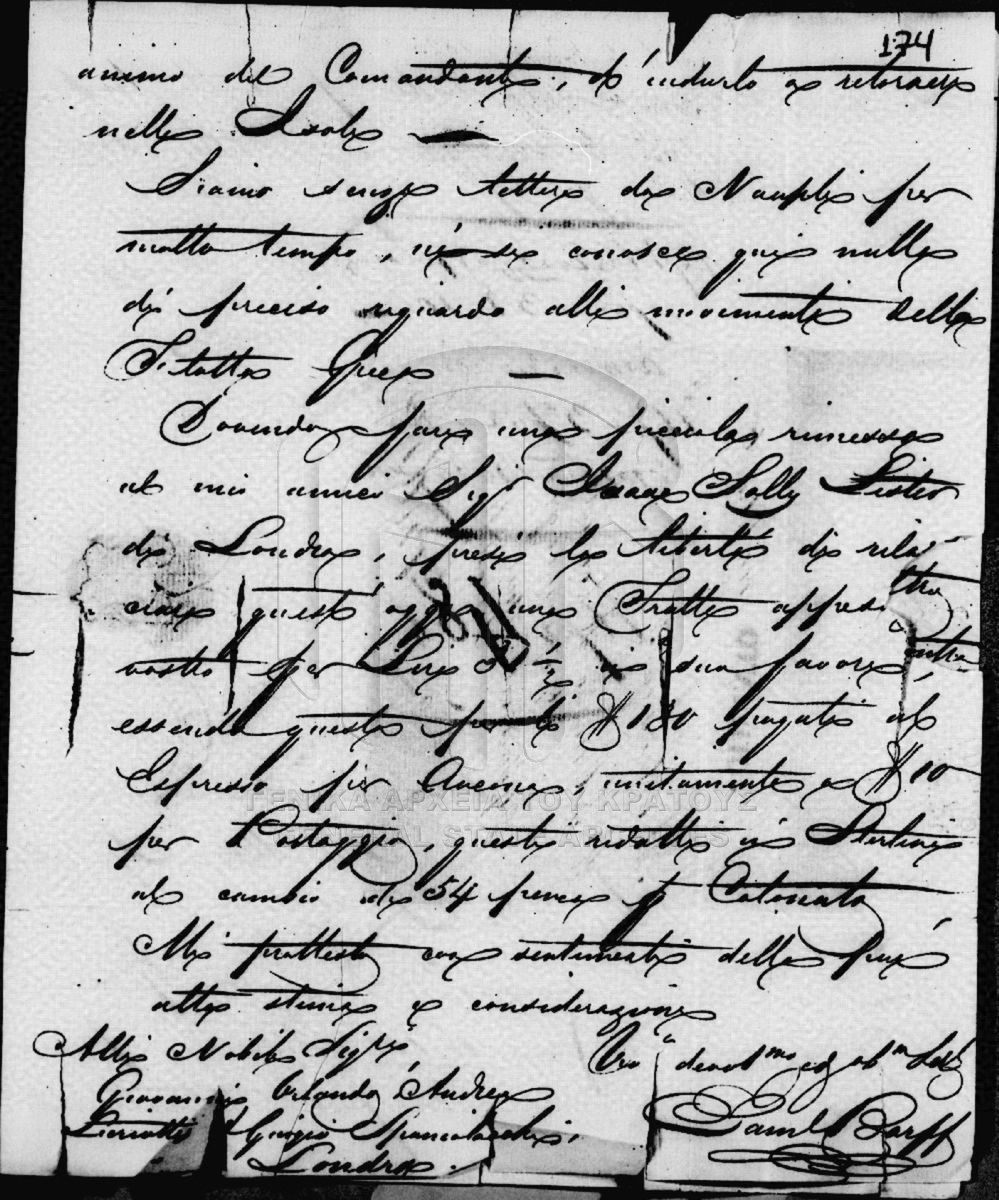 174
animo del Comandante, d'indurlo a retornare
nelle Isole —
Siamo senza lettere da Nauplia per
molto tempo, né si conosce qui nulla
di preciso riguardo alli movimenti della
Flotta Greca —
Dovendo fare una piccola rimessa
al mio amico Sigr Isaac Solly Lister
di Londra, presi la libertà di rila-
ciare quest'oggi una Tratta appresso
vostro per Lire in suo favore
essendo questa per li $180 pagati al
Espresso per Ancona, unitamente a $10
per Postaggio, questi ridotti in Sterline
al cambio di 54 pence p Colonnato
Mi protesto con sentimenti della più
alta stima e considerazione
Alli Nobili Sigri
Giovanni Orlando, Andrea
Luriotti & Giorgio Spaniolacchi,
Londra.
Vro devotmo ed obmo Sere
Saml Barff
ΓΕΝΙΚΑ ΑΡΧΕΙΑ ΤΟΥ ΚΡΑΤΟΥΣ
GENERAL STATE ARCHIVES